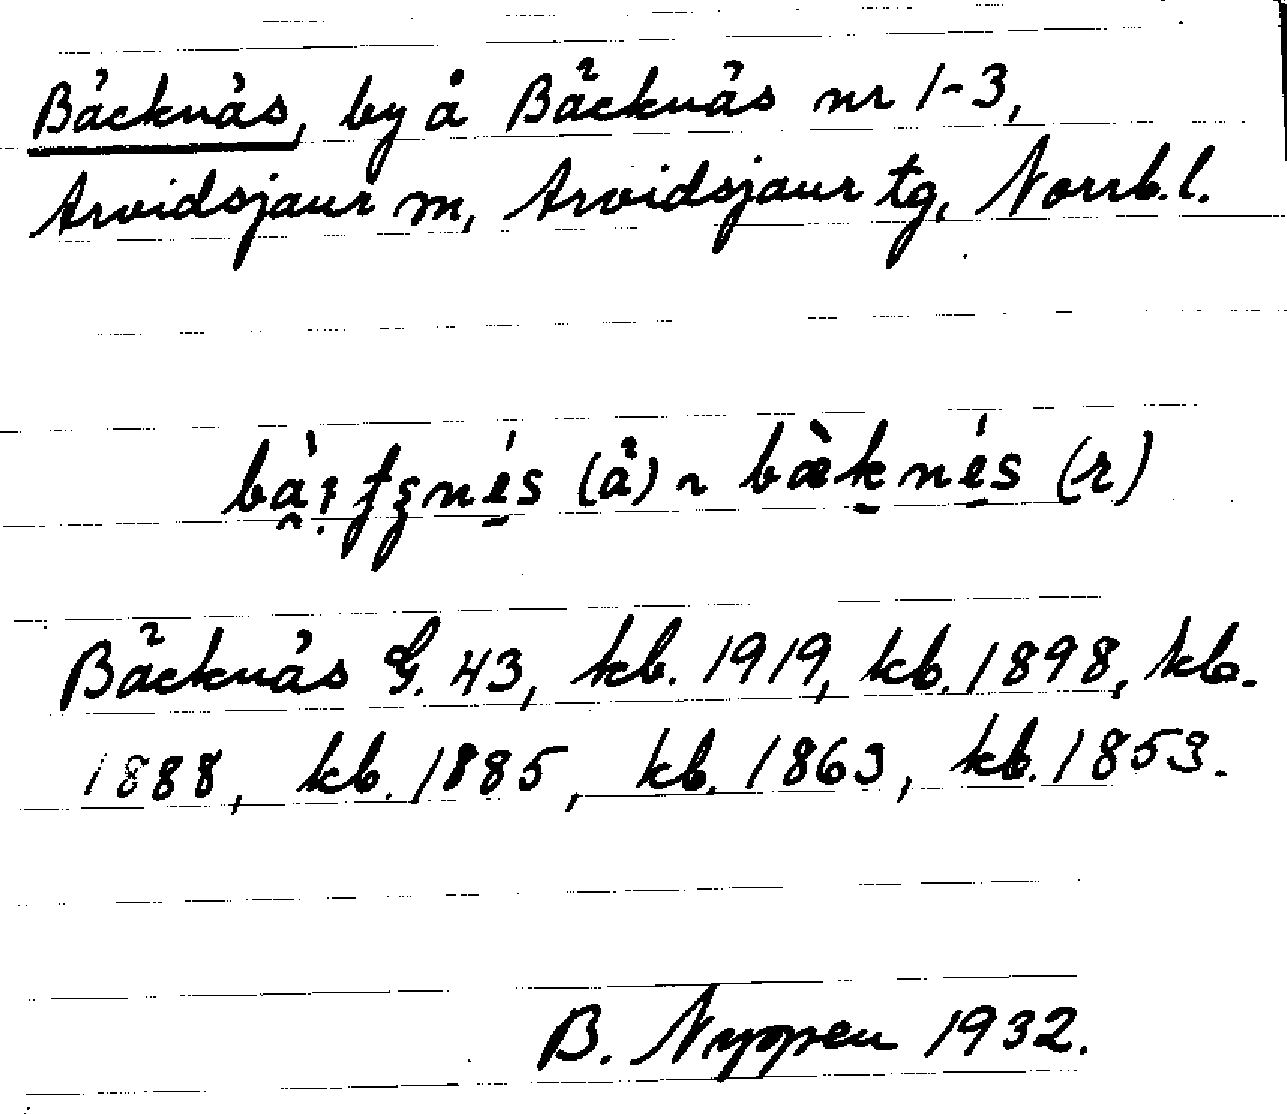 Bäcknäs, by å Bäcknäs nr 1-3,
Arvidsjaur m, Arvidsjaur tg, Norrb.l.
(ä) ~ bæ̀knés (r)
Bäcknäs G. 43, kb. 1919, kb. 1898, kb.
1888, kb. 1885, kb. 1863, kb. 1853.
B. Nyppen 1932.